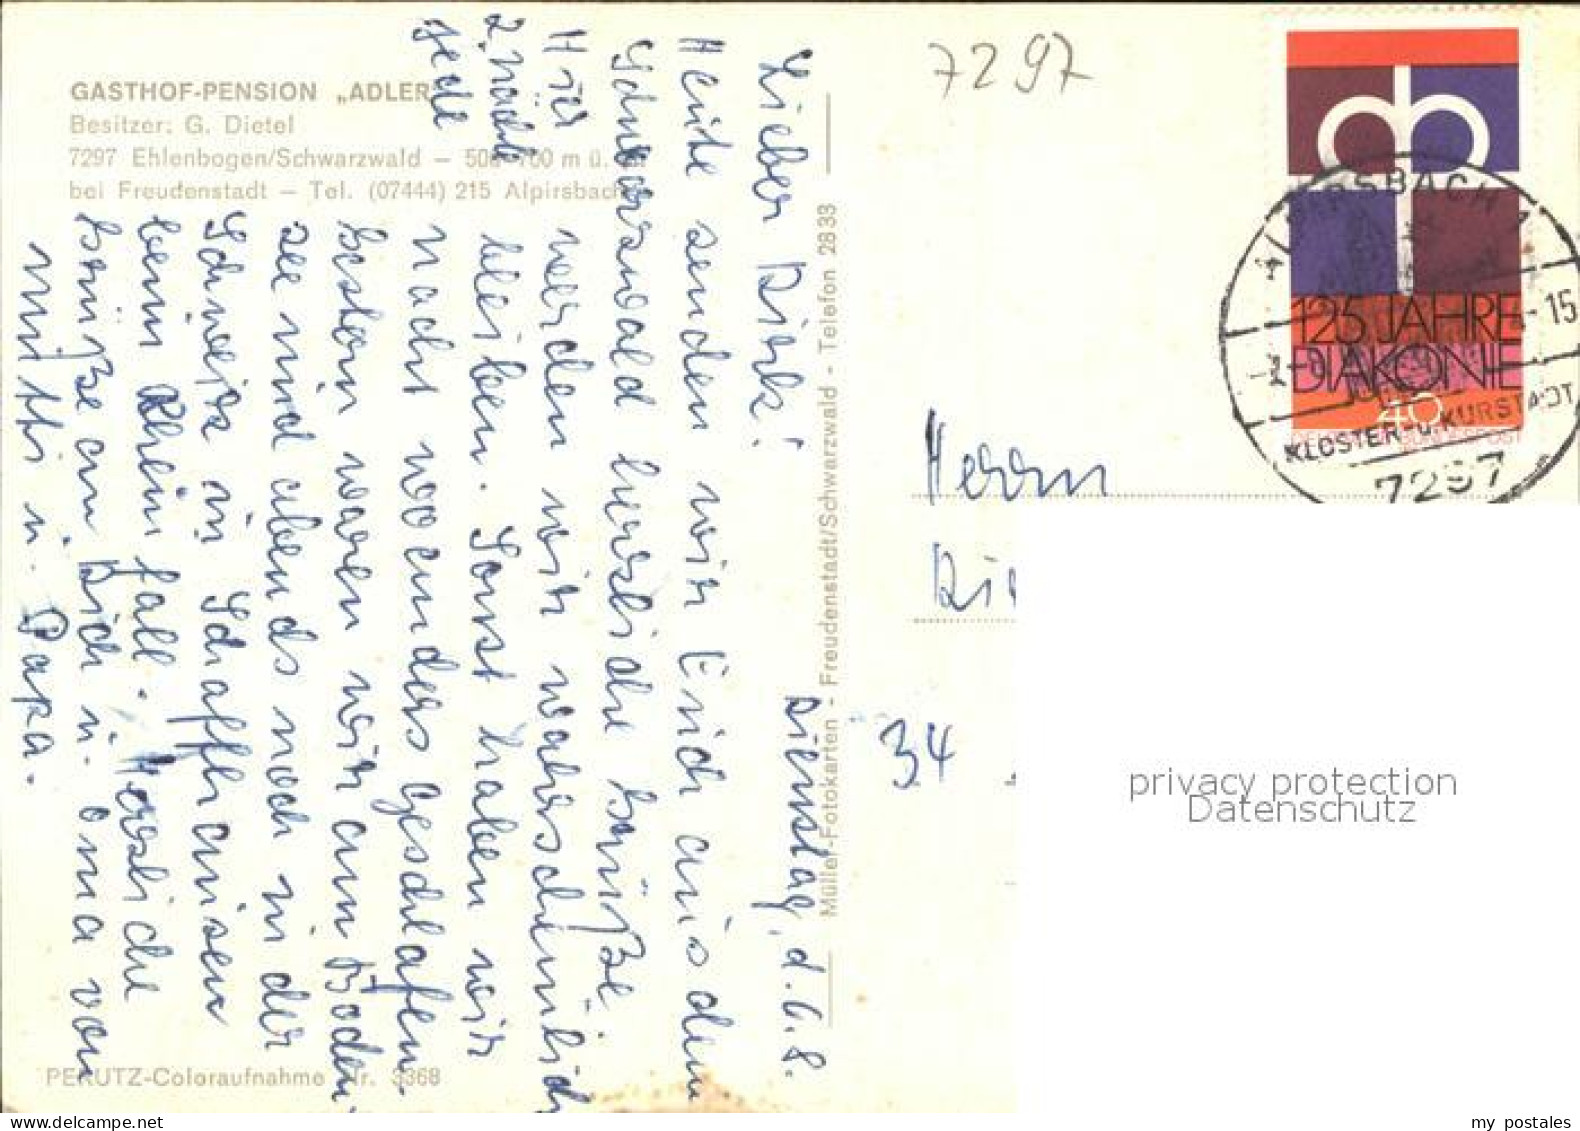 GASTHOF-PENSION „ADLER"
Besitzer: G. Dietel
7297 Ehlenbogen/Schwarzwald — 500-700 m ü.
bei Freudenstadt — Tel. (07444) 215 Alpirsbach
Dienstag, d. 6. 8.
Lieber Dirk!
Heute senden wir Euch aus dem
Schwarzwald herzliche Grüße.
Hier werden wir wahrscheinlich
2 Nächte bleiben. Sonst haben wir
jede Nacht woanders geschlafen.
Gestern waren wir am Boden-
see und abends noch in der
Schweiz in Schaffhausen
beim Rheinfall. Herzliche
Grüße an Dich u. Oma von
Mutti u. Papa.
PERUTZ-Coloraufnahme Nr. 3368
Müller-Fotokarten - Freudenstadt/Schwarzwald - Telefon 2833
7297
125 JAHRE
DIAKONIE
40
ALPIRSBACH 1
-15
KLOSTER-u.KURSTADT
7297
Herrn
34
privacy protection
Datenschutz
my postales